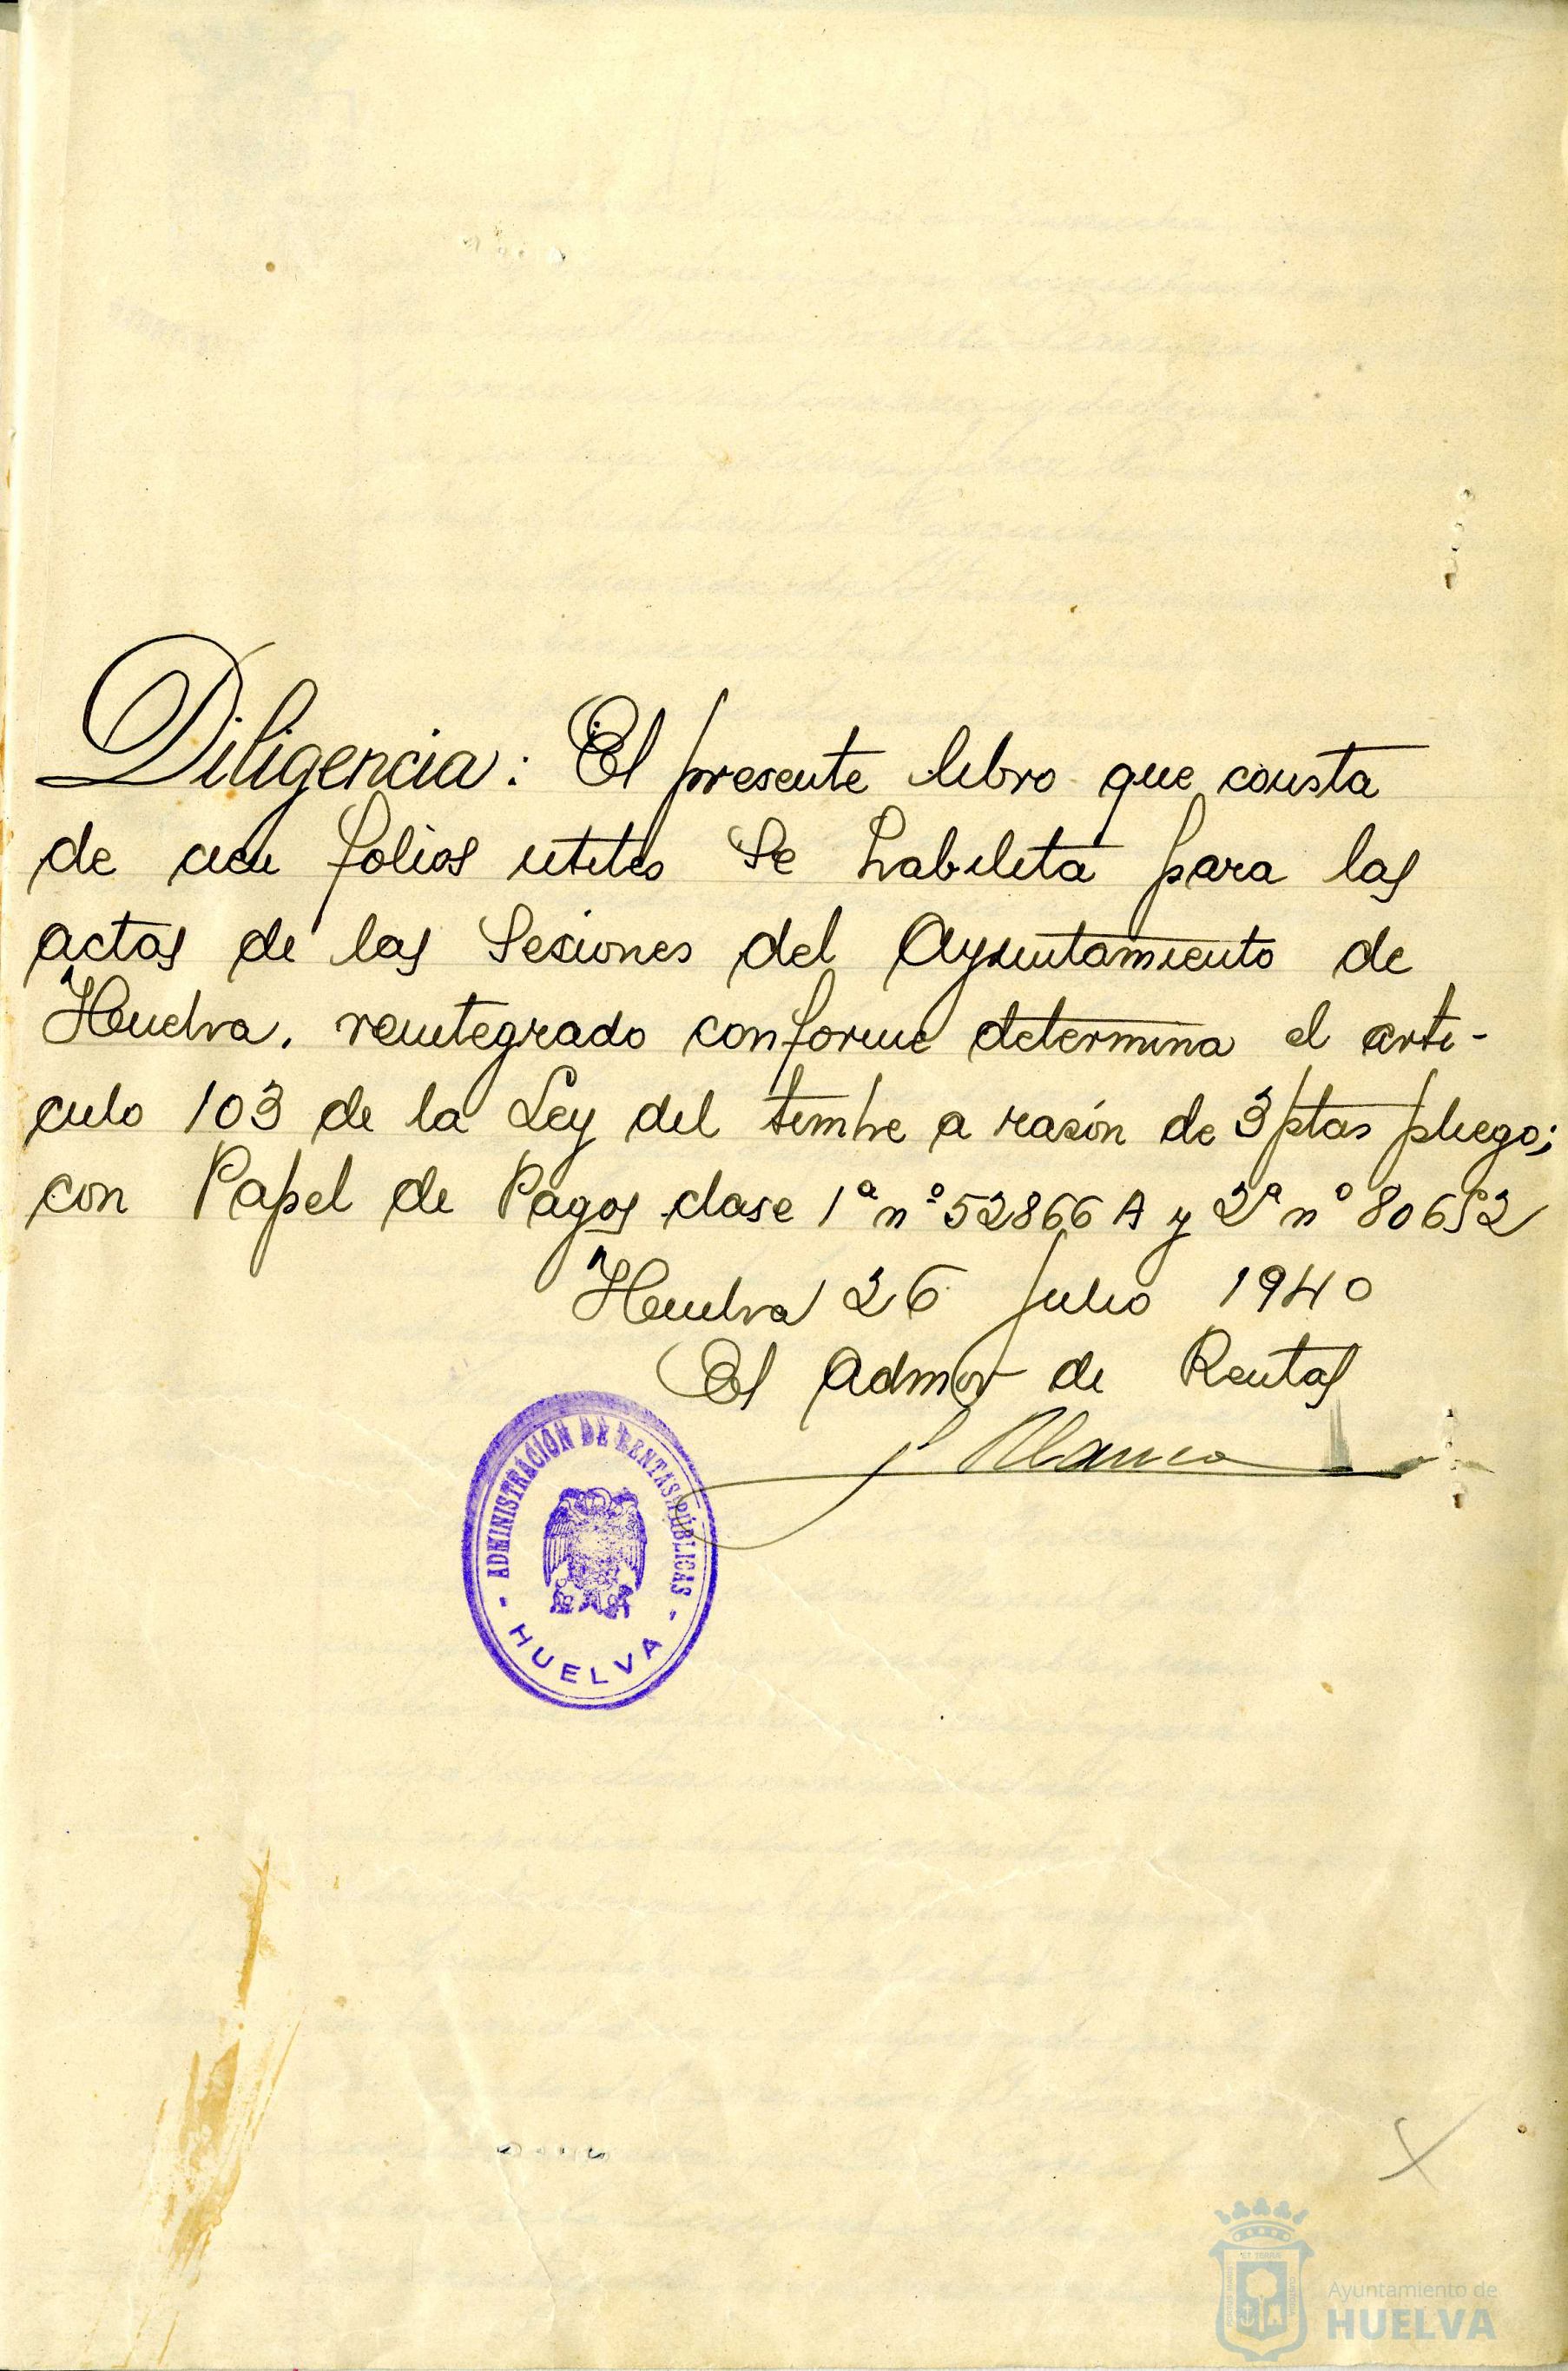 Diligencia: El presente libro que consta
de cien folios utiles se habilita para las
actas de las Sesiones del Ayuntamiento de
Huelva. reintegrado conforme determina el arti-
culo 103 de la Ley del timbre a razón de 3 ptas pliego;
con Papel de Pagos clase 1ª nº 52866 A y 2ª nº 80652
Huelva 26 Julio 1940
El Admor de Rentas
Blanco
ADMINISTRACIÓN DE RENTAS PÚBLICAS
- HUELVA -
Ayuntamiento de
HUELVA